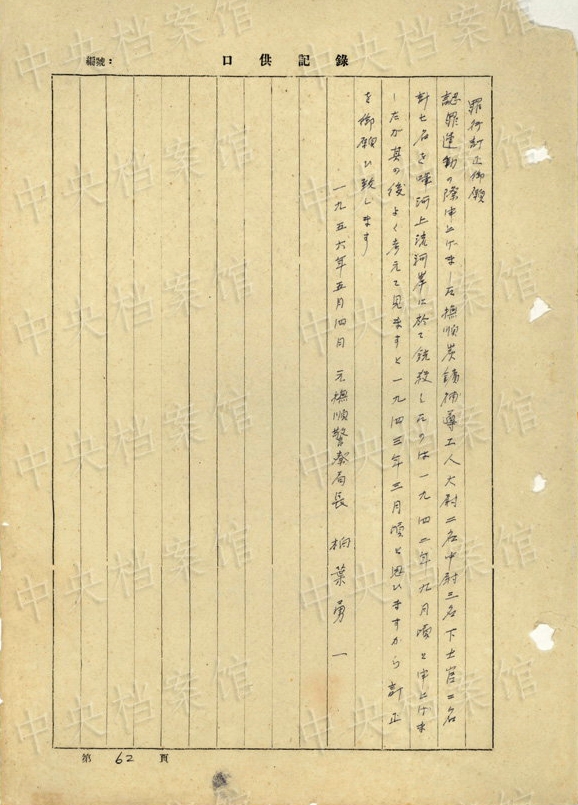 口供記錄
編號:
罪行訂正御願
認罪運動の際申上げました撫順炭鑛補導工人大尉二名中尉三名下士官二名
計七名を渾河上流河岸に於て銃殺したのは一九四二年九月頃と申上げま
したが其の後よく考えて見ますと一九四三年三月頃と思ひますから訂正
を御願ひ致します
一九五六年五月四日 元撫順警察局長 柏葉勇一
第 62 頁
中央档案馆